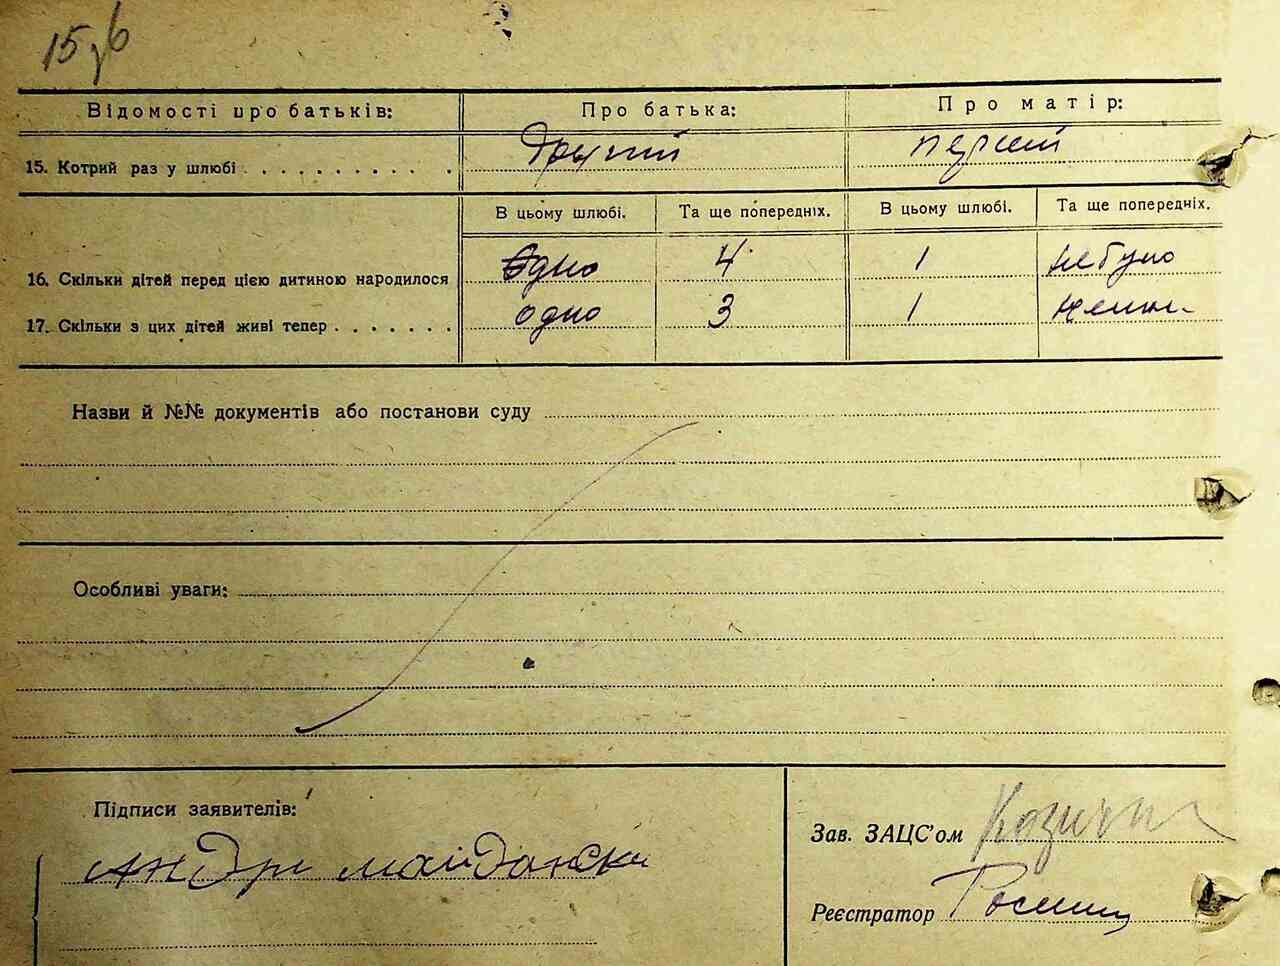 15 зб
Відомості про батьків: Про батька: Про матір:
15. Котрий раз у шлюбі . . . . . . . . . . . другий перший
В цьому шлюбі. Та ще попередніх. В цьому шлюбі. Та ще попередніх.
16. Скільки дітей перед цією дитиною народилося одно 4 1 не було
17. Скільки з цих дітей живі тепер . . . . . . . одно 3 1
Назви й №№ документів або постанови суду
Особливі уваги:
Підписи заявителів:
Андри майдански
Зав. ЗАЦС'ом
Реєстратор